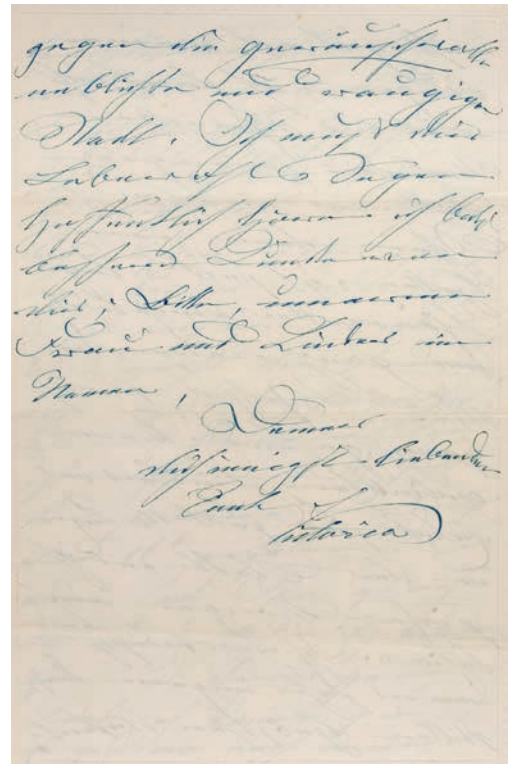 gegen die geräuschvolle
neblichte und rauchige
Stadt. Ich muß Dir
Lebewohl sagen
Hoffentlich höre ich bald
bessere Kunde von
Dir; Bitte, umarme
Frau und Kinder im
Namen,
Deiner
Dich innigst liebenden
Tante
Victoria